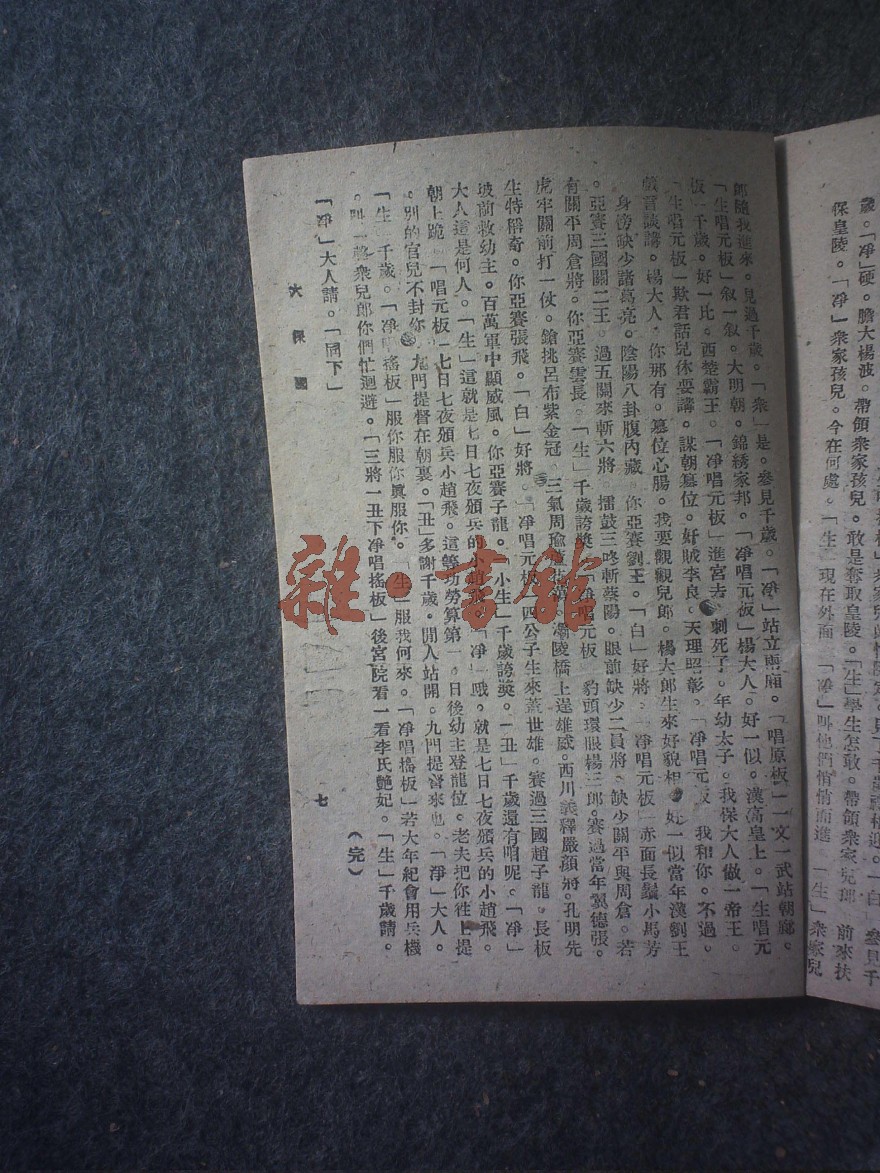 歲。「凈」硬。膽大楊波。帶領衆家孩兒。敢是奪取皇陵。「生」學生怎敢。帶領衆家兒郎 前來扶
保皇陵。「凈」衆家孩兒。今在何處。「生」現在外面 「凈」叫他們悄悄而進 「生」衆家兒
郎隨我進來。見過千歲。「衆」是。叅見千歲。「凈」站立兩廂。「唱原板」一文一武站朝廊。
「生唱元板」叙一叙。大明朝。錦綉家邦。「凈唱元板」楊大人。好一似。漢高皇上。「生唱元
板」千歲。好一比。西楚霸王。「凈唱元板」進宮去 刺死了。年幼太子。我保大人做一帝王。
「生唱元板」欺君話兒休要講。謀朝簒位。好賊李良。天理照彰。「凈唱元板 我和你。不過。
戲言談講。楊大人。你那有。簒位心腸。我要觀觀兒郎。楊大郎生來好貌相 好一似當年漢劉王
身傍缺少諸葛亮。陰陽八卦腹內藏。你亞賽劉王。「白」好將。「凈唱元板」赤面長鬚小馬芳
。亞賽三國關二王。過五關來斬六將。擂鼓三咚斬蔡陽。眼前缺少二員將。缺少關平與周倉。若
有關平周倉將。你亞賽雲長。「生」千歲誇獎。「凈唱元板 豹頭環眼楊三郎。賽過當年翼德張。
虎牢關前打一仗。鎗挑呂布紫金冠。三氣周瑜 灞陵橋上逞雄威。西川義釋嚴顏將。孔明先
生特稱奇。你亞賽張飛。「白」好將。「凈唱元板」四公子生來蓋世雄。賽過三國趙子龍。長板
坡前救幼主。百萬軍中顯威風。你亞賽子龍。「小生」千歲誇獎。「丑」千歲還有咱呢。「凈」
大人這是何人。「生」這就是七日七夜頒兵的 趙飛。「凈」哦。就是七日七夜頒兵的小趙飛。
朝上跪。「唱元板」七日七夜頒兵小趙飛。這等功勞算第一。日後幼主登龍位。老夫把你往上提
。別的官兒不封你。九門提督在朝裏。「丑」多謝千歲。閒人站開。九門提督來也。「淨」大人。
「生」千歲。「凈唱搖板」服你服你眞服你。「生」服我何來。「凈唱搖板」若大年紀會用兵機
。叫一聲衆兒郎你們忙迴避。「三將一丑下凈唱搖板」後宮院看一看李氏艶妃。「生」千歲請。
「凈」大人請。「同下」
(完)
大保國
七
雜·書館